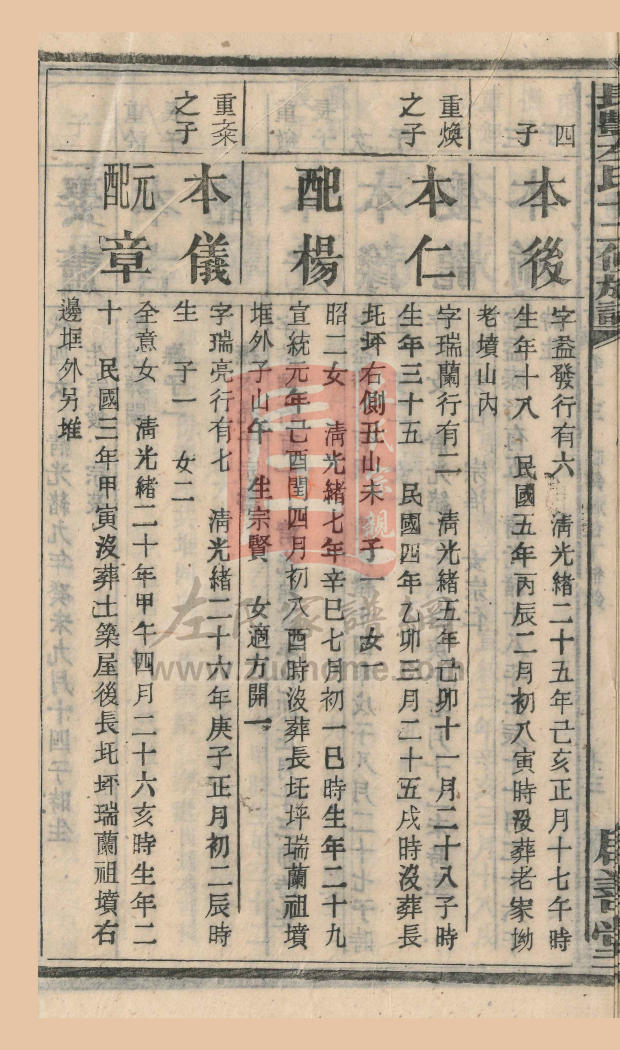 四
子
本後
字益發行有六　清光緒二十五年己亥正月十七午時
生年十八　民國五年丙辰二月初八寅時沒葬老家坳
老墳山內
重煥
之子
本仁
字瑞蘭行有二　清光緒五年己卯十一月二十八子時
生年三十五　民國四年乙卯三月二十五戌時沒葬長
圫坪右側丑山未　子一　女一
配楊
昭二女　清光緒七年辛巳七月初一巳時生年二十九
宣統元年己酉閏四月初八酉時沒葬長圫坪瑞蘭祖墳
框外子山午　生宗賢　女適方開一
重
之子
本儀
字瑞亮行有七　清光緒二十六年庚子正月初二辰時
生　子一　女二
元配章
全意女　清光緒二十年甲午四月二十六亥時生年二
十　民國三年甲寅沒葬土築屋後長圫坪瑞蘭祖墳右
邊框外另堆
左氏家譜網
www.zuohome.com